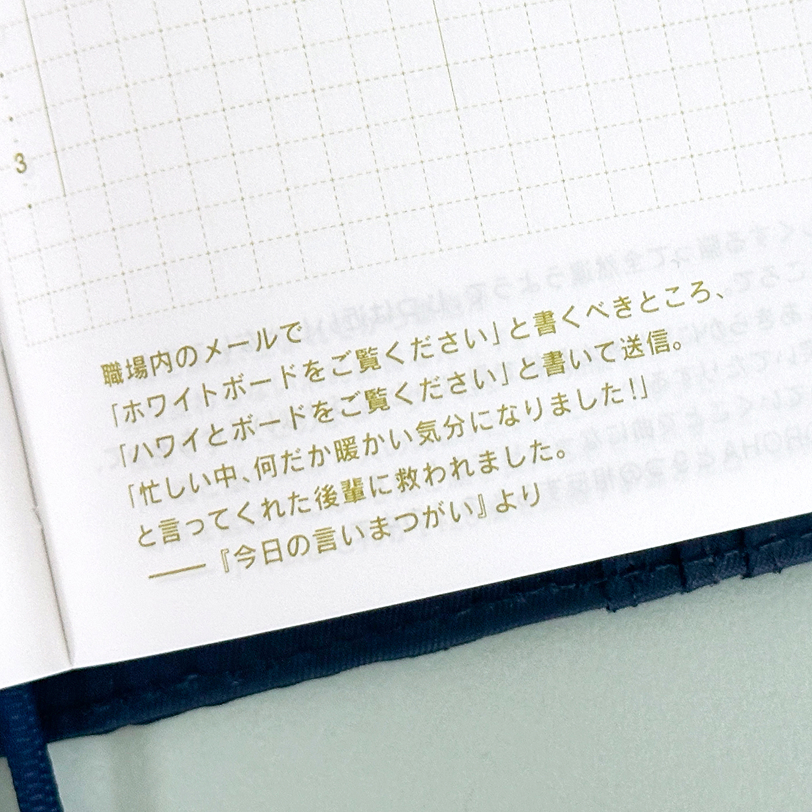 3
職場内のメールで
「ホワイトボードをご覧ください」と書くべきところ、
「ハワイとボードをご覧ください」と書いて送信。
「忙しい中、何だか暖かい気分になりました!」
と言ってくれた後輩に救われました。
——『今日の言いまつがい』より